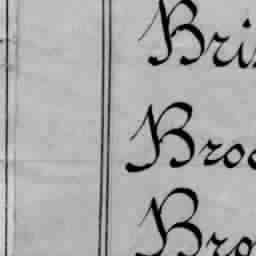 Bri
Broo
Bro